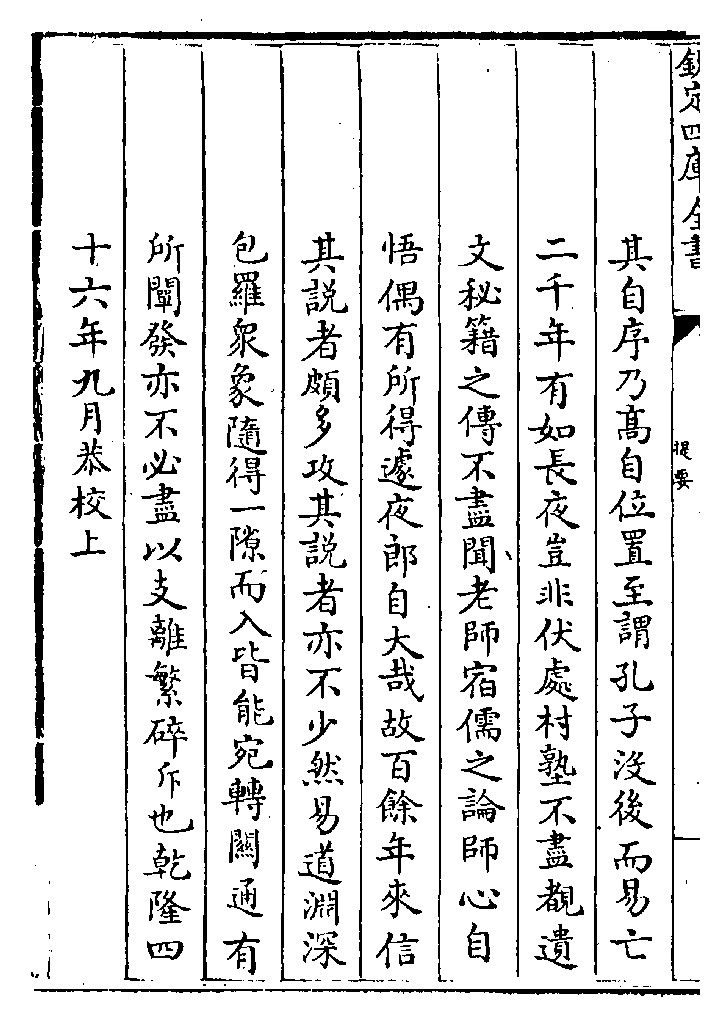 欽定四庫全書
提要
其自序乃髙自位置至謂孔子没後而易亡
二千年有如長夜豈非伏處村塾不盡覩遺
文秘籍之傳不盡聞老師宿儒之論師心自
悟偶有所得遽夜郎自大哉故百餘年來信
其説者頗多攻其説者亦不少然易道淵深
包羅衆象隨得一隙而入皆能宛轉關通有
所闡發亦不必盡以支離繁碎斥也乾隆四
十六年九月恭校上